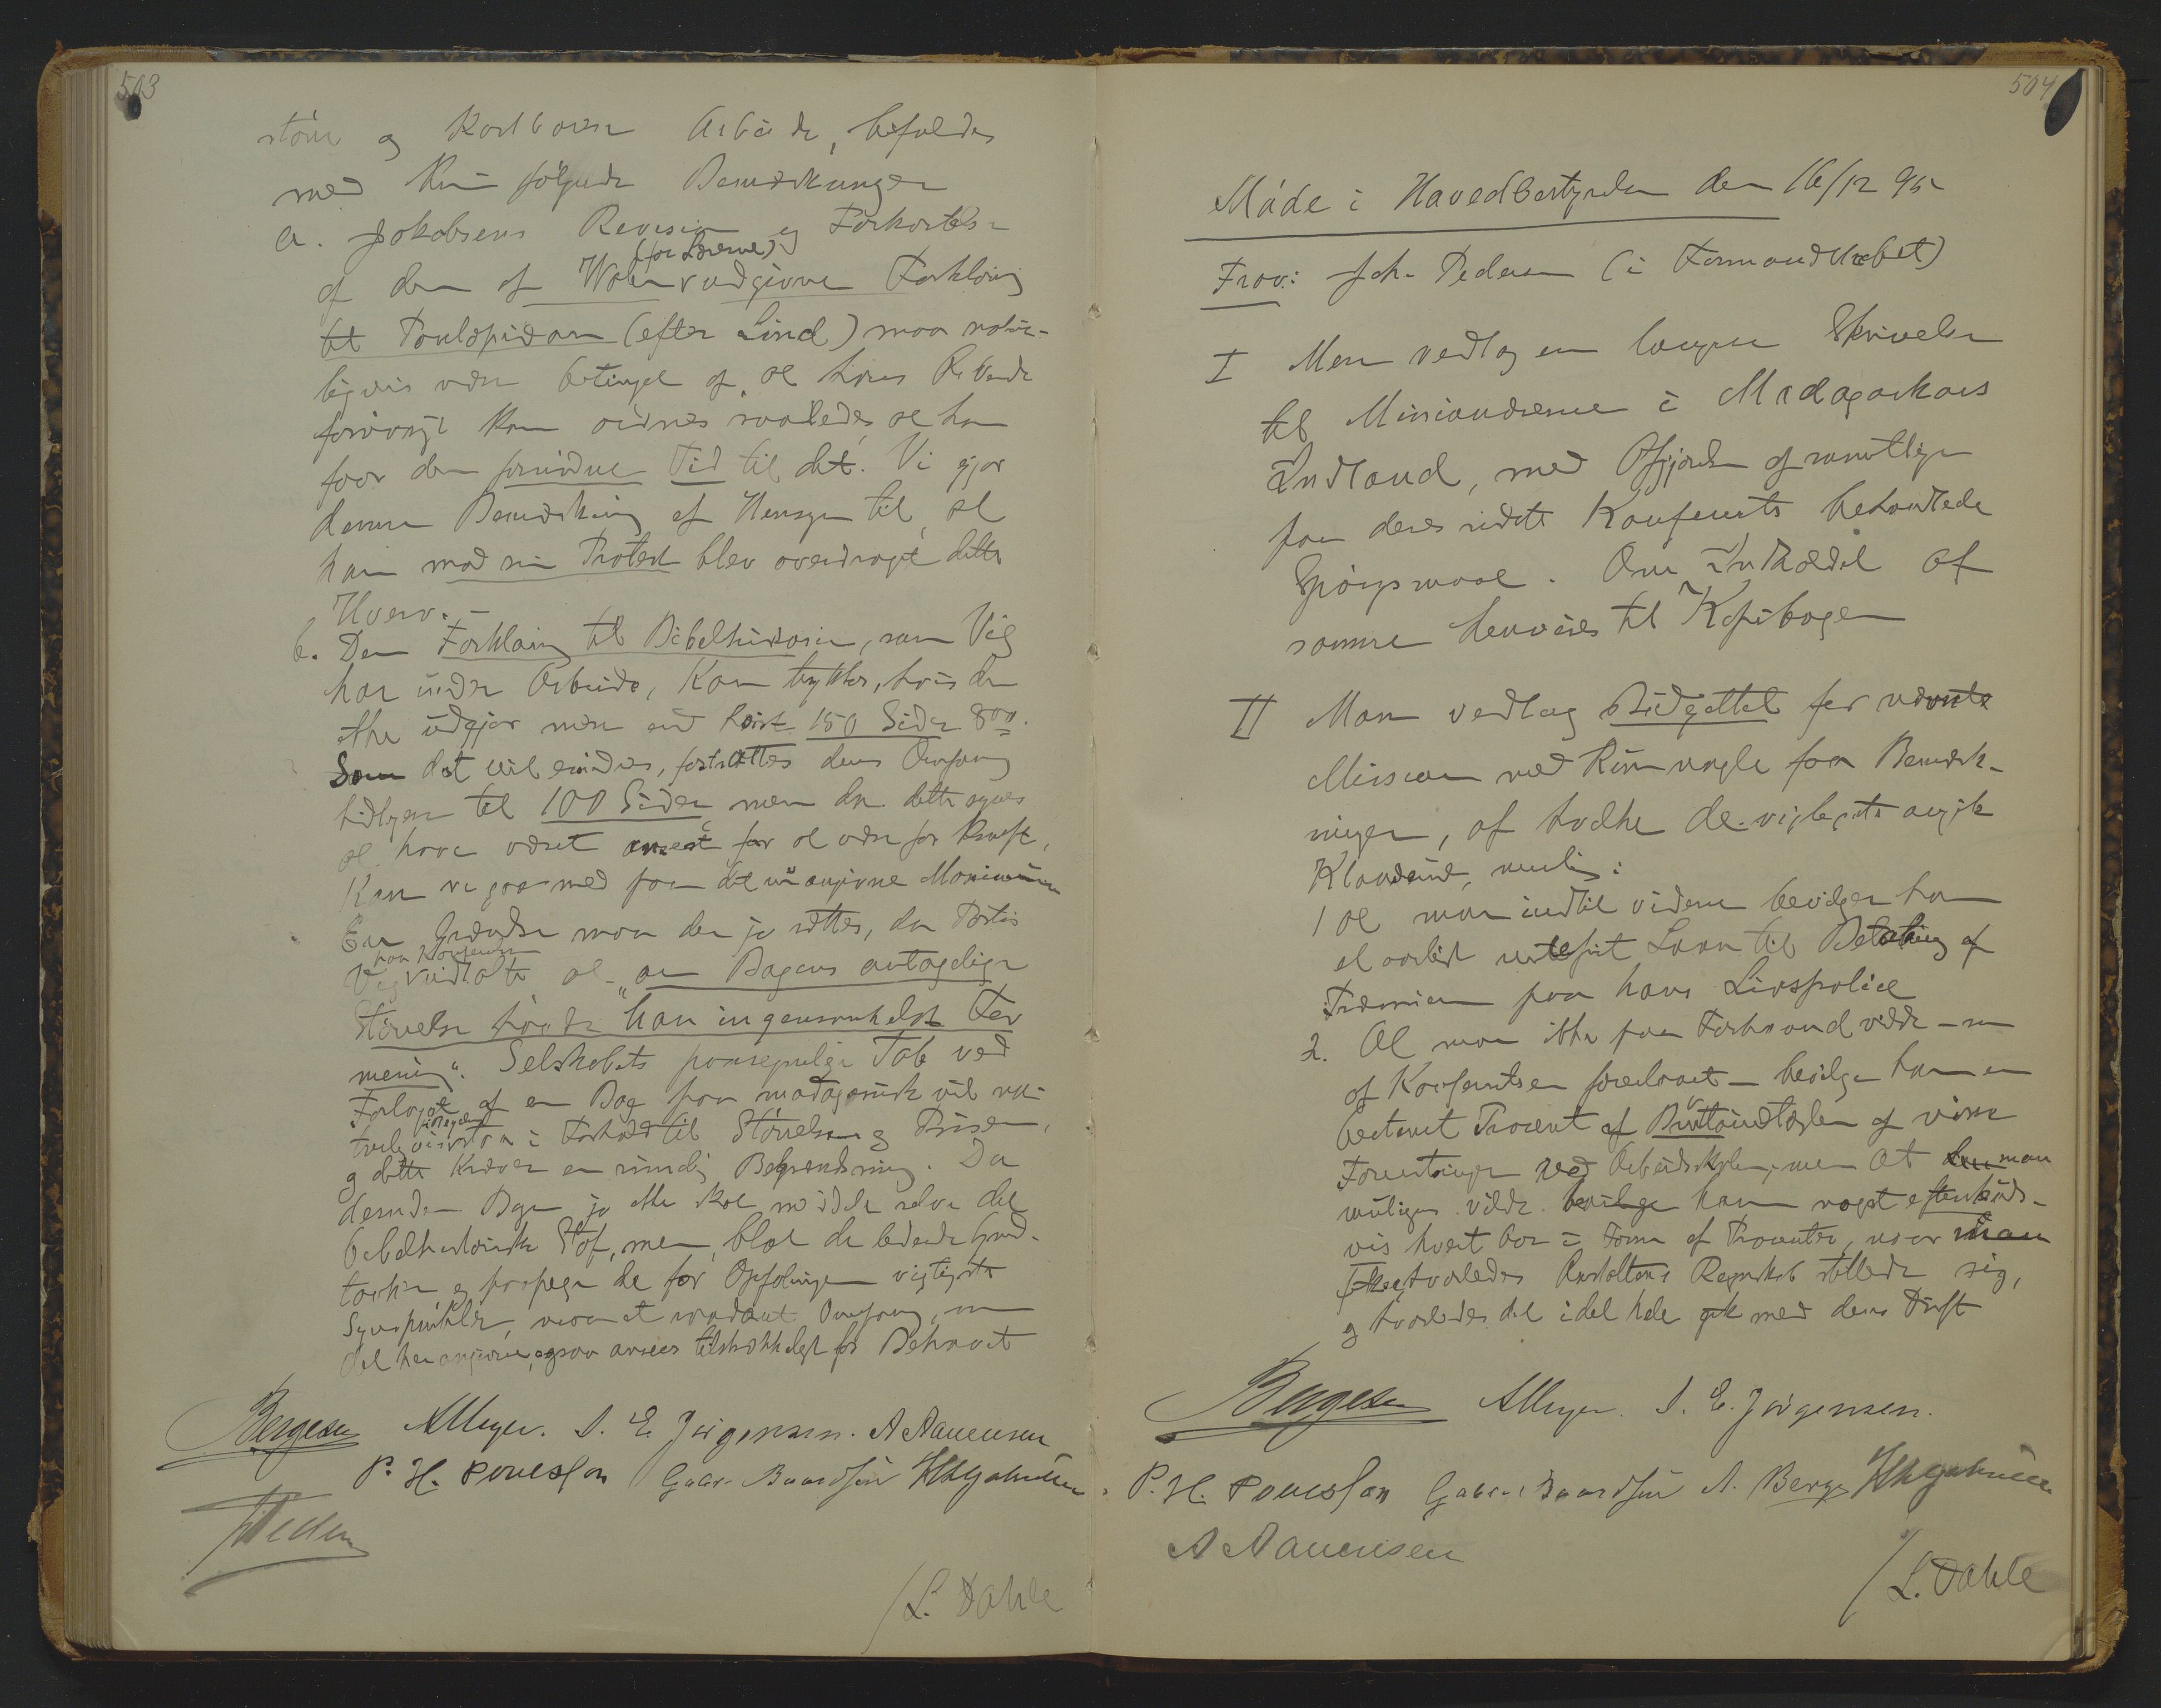 503
større og kostbarere Arbeide, befaldes
med kun følgende Bemærkninger
a. Jakobsens Revision og Forkortelse
(for Lærerne)
af den af Walen udgivne Forklaring
til Pontoppidan (efter Lind) maa natur-
ligvis være betinget af, at hans
forøvrigt kan ordnes saaledes, at han
faar den fornødne Tid til det. Vi gjør
denne Bemærkning af Hensyn til, at
han mod sin Protest blev overdraget dette
Hverv. –
b. Den Forklaring til Bibelhistorien, som Vig
har under Arbeide, kan trykkes, hvis den
ikke udgjør mere end høist 150 Sider 8vo.
Som det vil erindres, fastsattes dens Omfang
tidligere til 100 Sider, men da dette synes
at have været anseet for at være for knapt,
kan vi gaa med paa det nu angivne Maximum
En Grændse maa der jo sættes, da Pastor
paa Konferensen
Vig udtalte at "om Bogens antagelige
Størrelse havde han ingensomhelst For
mening". Selskabets paaregnelige Tab ved
Forlaget af en Bog paa madagassisk vil na-
turligvis staa i Forhold til Størrelsen og Prisen,
og dette kræver en rimelig Begrændsning. Da
desuden Bogen jo ikke skal meddele selve det
bibelhistoriske Stof, men blot de ledende Grund-
tanker og paapege de for Opfatningen vigtigste
Synspunkter, maa et saadant Omfang, som
det her angivne, ogsaa ansees tilstrækkeligt for Behovet
Bergesen AMeyer. S. E. Jørgensen. A Aanensen
P. H. Poulsson Gabr. Baardsen
/L. Dahle
504
Møde i Hovedbestyrelsen den 16/12 95
Frav: Joh. Pedersen (i Formandskabet)
I Man vedtog en længere Skrivelse
til Missionærerne i Madagaskars
Indland, med Afgjørelse af samtlige
paa deres sidste Konferents behandlede
Spørgsmaal. Om Indholdet af
samme henvises til Kopibogen
II Man vedtog Budgettet for
Mission med kun nogle faa Bemærk-
ninger, af hvilke de vigtigste angik
nemlig:
1 at man indtil videre bevilger ham
et aarligt rentefrit Laan til Betaling af
Præmien paa hans Livspolice
2. At man ikke paa Forhaand vilde – som
af Konferentsen foreslaaet – bevilge ham en
bestemt Procent af Bruttoindtægten af visse
Forretninger ved Arbeidsskolen, men at man
muligens vilde bevilge ham noget efterskuds-
vis hvert Aar i Form af Procenter, naar man
hvorledes Anstaltens Regnskab stillede sig,
og hvorledes det i det hele gik med dens Drift
Bergesen AMeyer. S. E. Jørgensen.
P. H. Poulsson Gabr. Baardsen A. Berge
A Aanensen
/L. Dahle